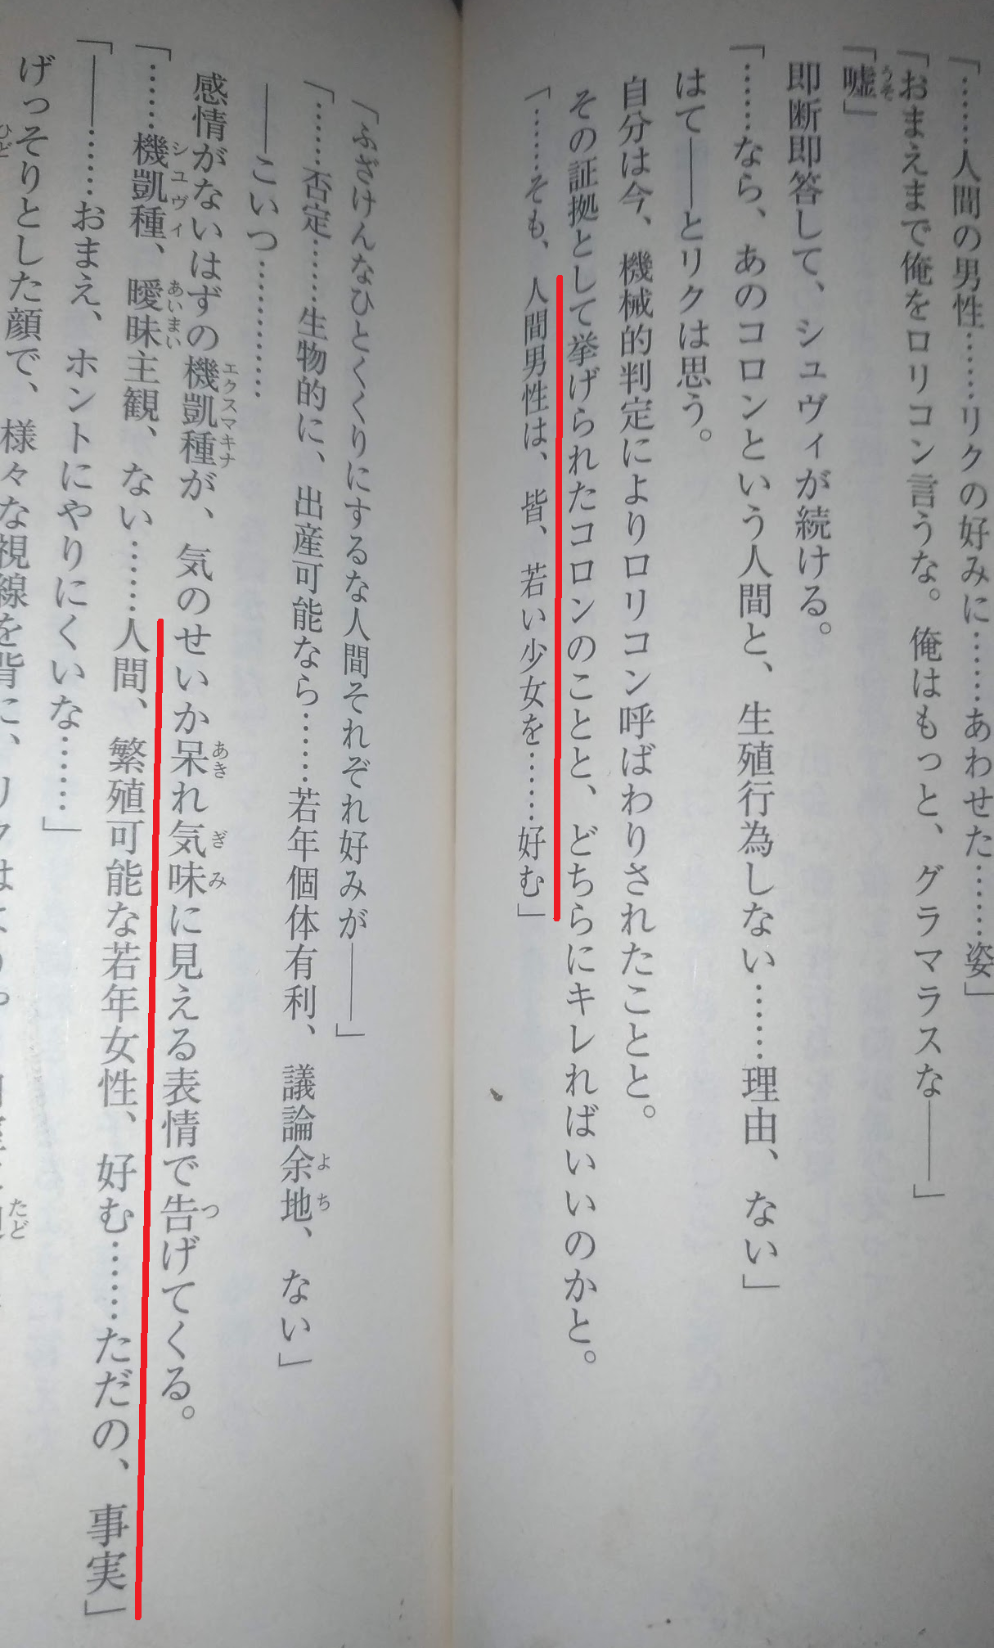 「……人間の男性……リクの好みに……あわせた……姿」
「おまえまで俺をロリコン言うな。俺はもっと、グラマラスな——」
「嘘」
うそ
即断即答して、シュヴィが続ける。
「……なら、あのコロンという人間と、生殖行為しない……理由、ない」
はて——とリクは思う。
自分は今、機械的判定によりロリコン呼ばわりされたことと。
その証拠として挙げられたコロンのことと、どちらにキレればいいのかと。
「……そも、人間男性は、皆、若い少女を……好む」
「ふざけんなひとくくりにするな人間それぞれ好みが——」
「……否定……生物的に、出産可能なら……若年個体有利、議論余地、ない」
よち
——こいつ…………
感情がないはずの機凱種が、気のせいか呆れ気味に見える表情で告げてくる。
エクスマキナ
あき
ぎみ
つ
「……機凱種、曖昧主観、ない……人間、繁殖可能な若年女性、好む……ただの、事実」
シュヴィ
あいまい
「——……おまえ、ホントにやりにくいな……」
げっそりとした顔で、様々な視線を背に、リクは
ひど
たど